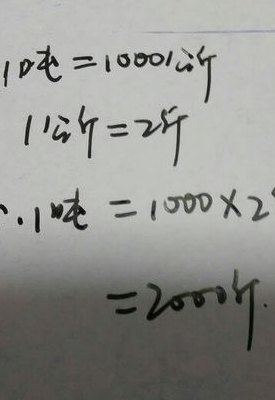 1吨=1000公斤
1公斤=2斤
∴1吨=1000×2
=2000斤.